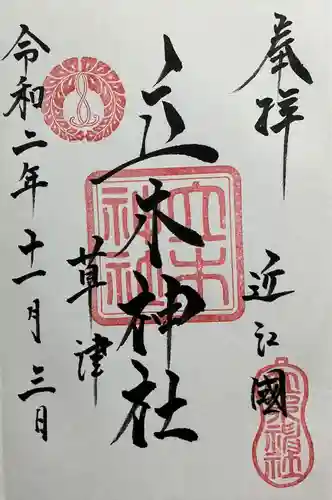 奉拝
近江國
立木神社
草津
令和二年十一月三日
立木神社